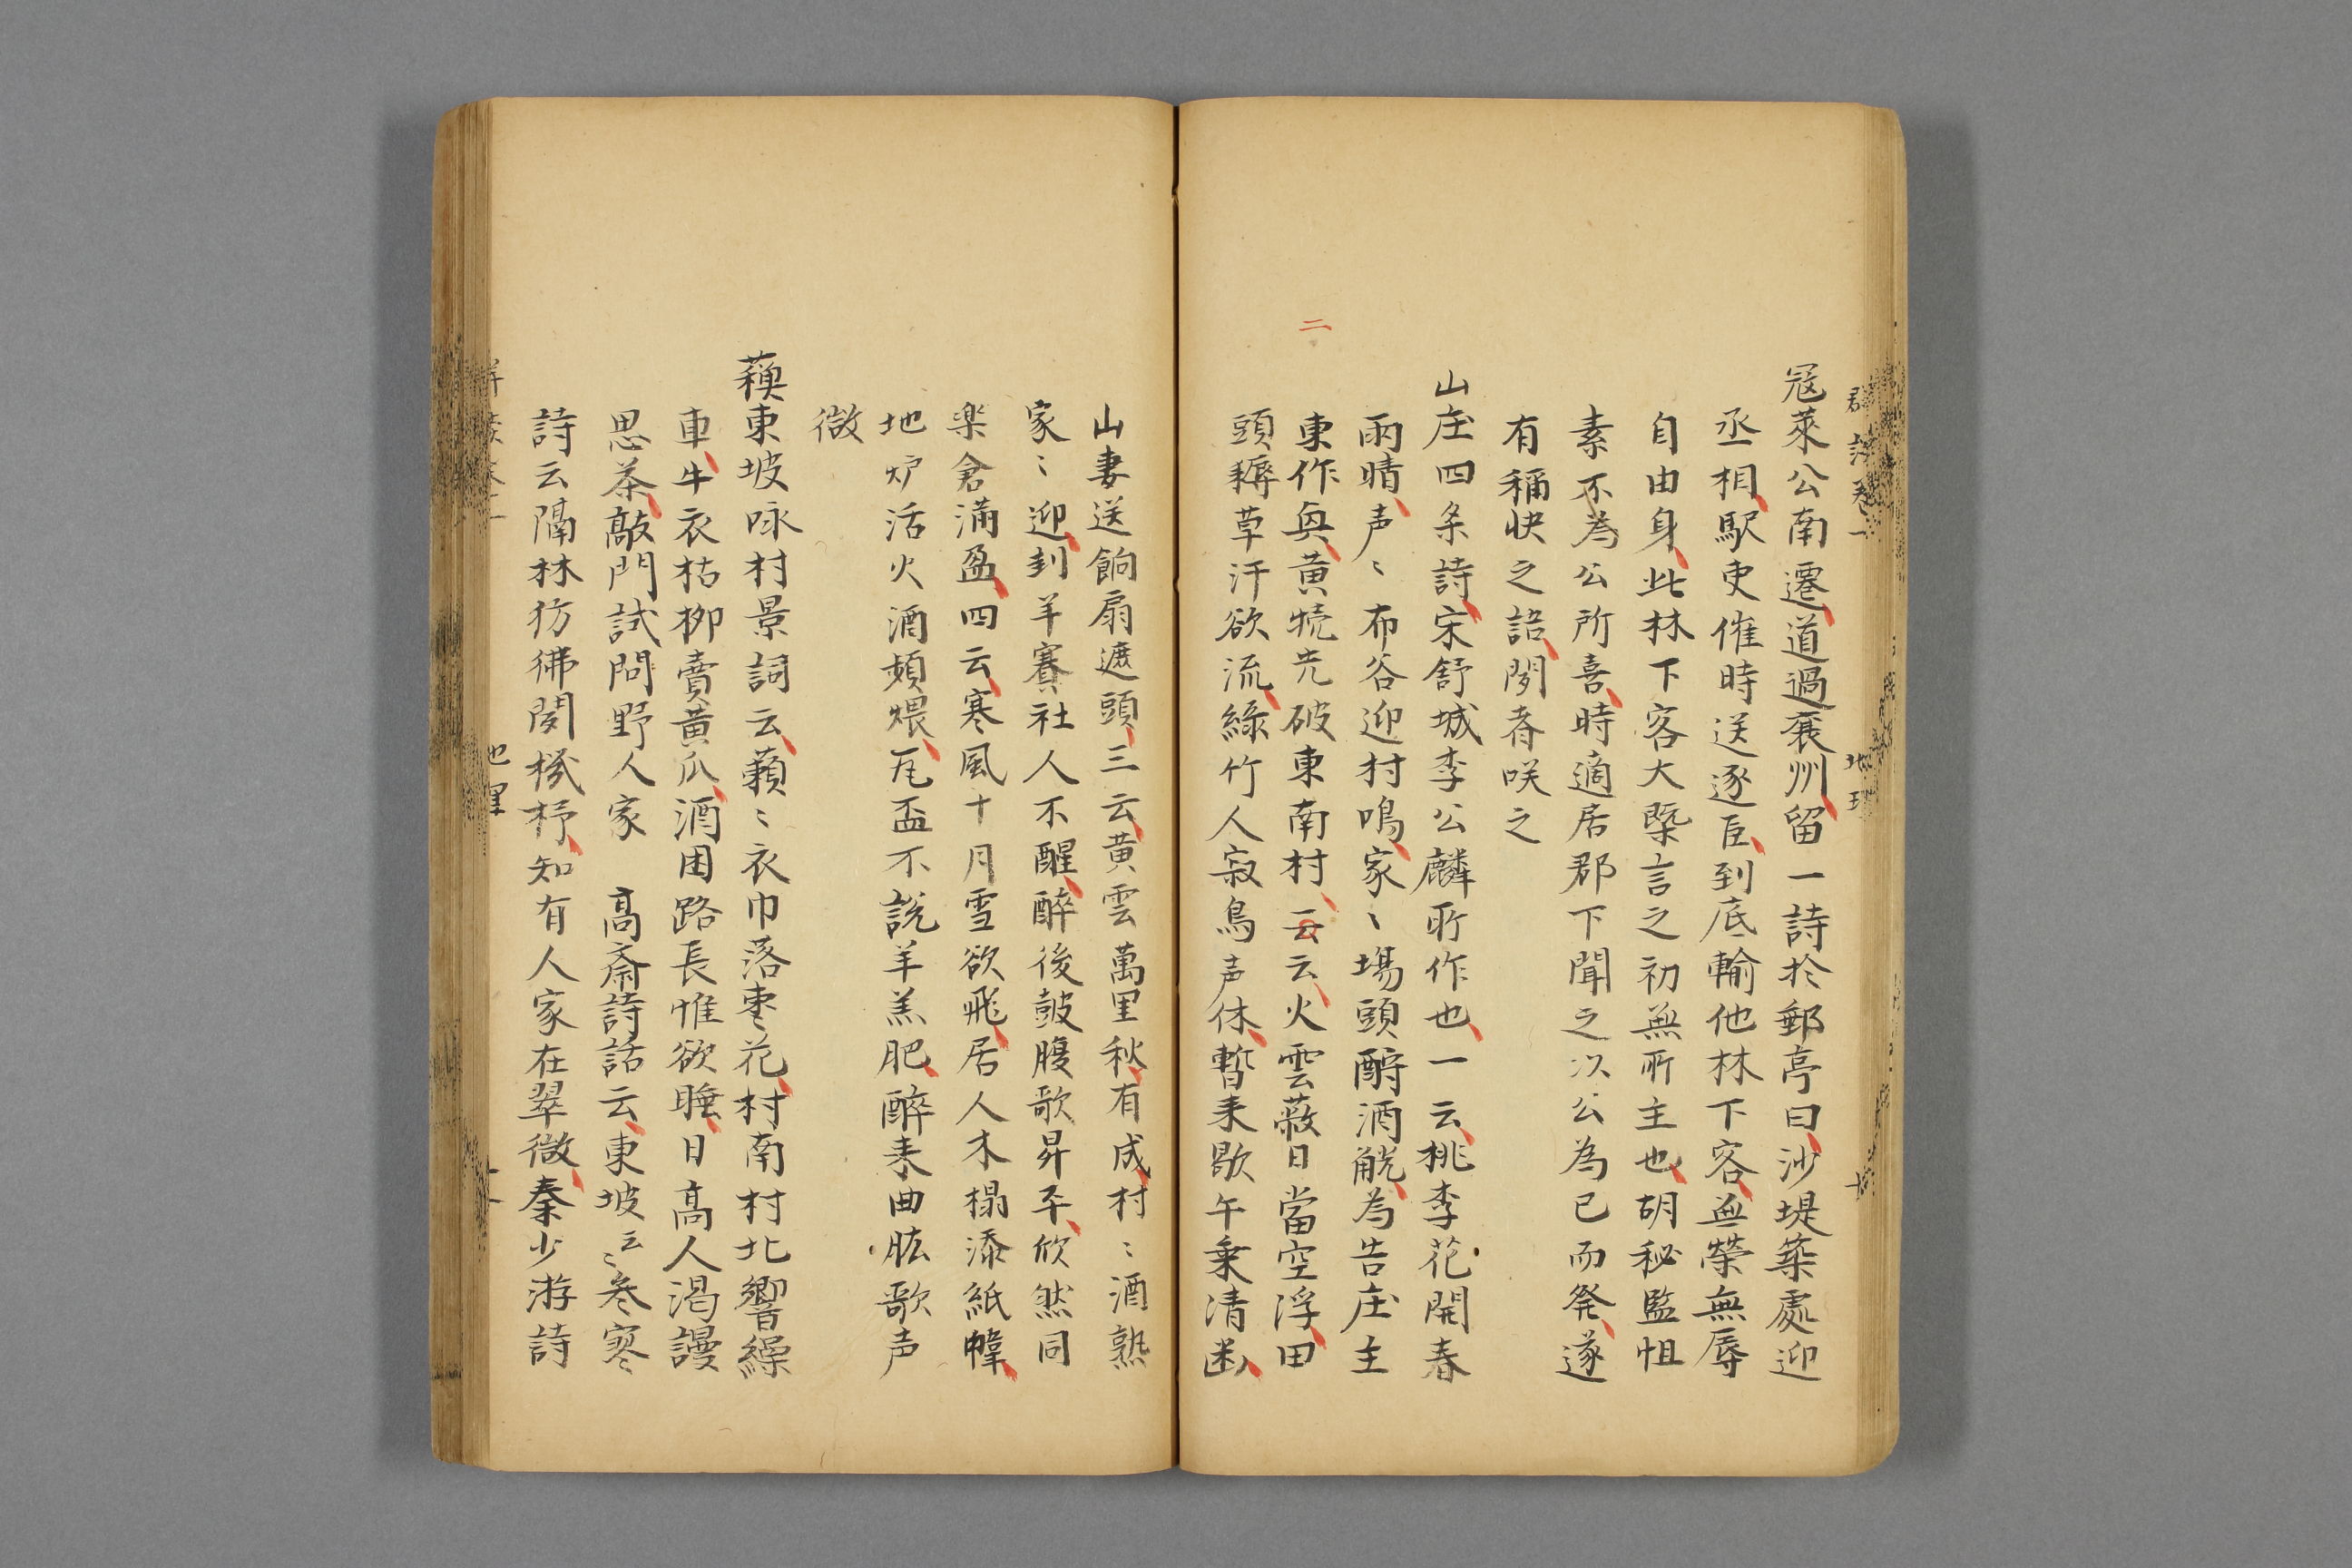 寇萊公南遷道過襄州留一詩於郵亭曰沙堤築處迎
丞相駅吏催時送逐臣到底輸他林下客無榮無辱
自由身此林下客大槩言之初無所主也胡秘監怛
素不為公所喜時適居郡下聞之以公為已而発遂
有稱快之語聞者咲之
山庄四条詩宋舒城李公麟所作也一云桃李花開春
雨晴声〻布谷迎村鳴家〻場頭酹酒觥為告庄主
東作興黄犢先破東南村
二
云云火雲蔽日當空浮田
頭耨草汗欲流緑竹人寂鳥声休暫来歇午乗清幽
山妻送餉扇遮頭三云黄雲萬里秋有成村〻酒熟
家〻迎刲羊賽社人不醒醉後皷腹歌昇平欣然同
楽倉滿盈四云寒風十月雪欲飛居人木榻添紙幃
地炉活火酒頻煨瓦盃不説羊羔肥醉来曲肱歌声
微
蘓東坡咏村景詞云蔌〻衣巾落枣花村南村北響繰
車牛衣枯柳賣黄瓜酒困路長惟欲睡日高人渇謾
思茶敲門試問野人家　高斎詩話云東坡云〻参寥
詩云隔林彷彿聞機杼知有人家在翠微秦少游詩
地理